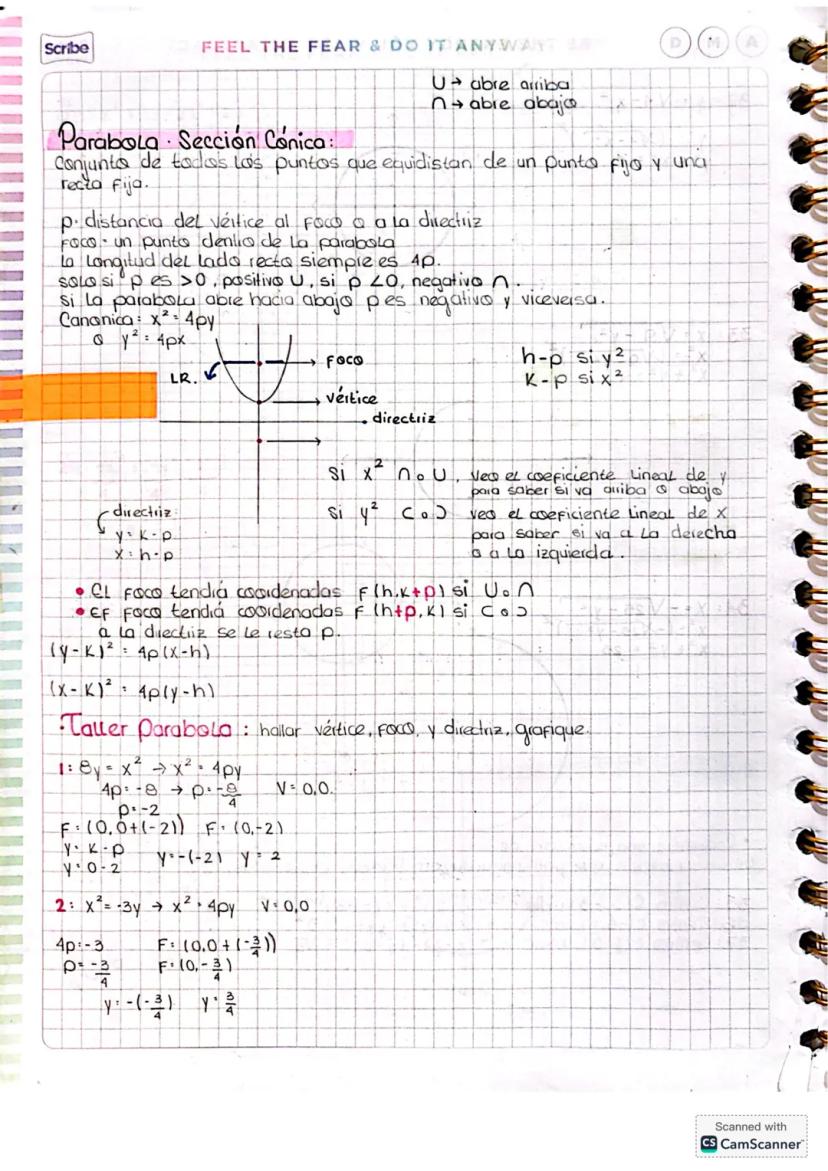 Scribe
FEEL THE FEAR & DO IT ANYWAY
D M A
U → abre arriba
∩ → abre abajo
Parabola · Sección Cónica:
Conjunto de todos los puntos que equidistan de un punto fijo y una
recta fija.
p· distancia del vértice al foco o a la directriz
Foco · un punto dentro de la parabola
la longitud del lado recto siempre es 4p.
solo si p es >0, positivo U, si p <0, negativo ∩.
si la parabola abre hacia abajo p es negativo y viceversa.
Canonica: x² = 4py
o y² = 4px
foco
LR.
vértice
directriz
h-p si y²
k-p si x²
Si x² ∩ o U, veo el coeficiente lineal de y
para saber si va arriba o abajo
Si y² ⊂ o ⊃ veo el coeficiente lineal de x
para saber si va a la derecha
o a la izquierda.
directriz
y = k - p
x = h - p
• El foco tendrá coordenadas F(h,k+p) si U o ∩
• EF foco tendrá coordenadas F(h+p,k) si ⊂ o ⊃
a la directriz se le resta p.
(y-k)² = 4p(x-h)
(x-k)² = 4p(y-h)
·Taller parabola: hallar vértice, foco, y directriz, grafique.
1: 8y = x² → x² = 4py
4p = -8 → p = -8/4 V = 0,0.
p = -2
F = (0,0+(-2)) F = (0,-2)
y = k - p
y = 0 - 2 y = -(-2) y = 2
2: x² = -3y → x² = 4py V = 0,0
4p = -3 F = (0,0 + (-3/4))
p = -3/4 F = (0,-3/4)
y = -(-3/4) y = 3/4
Scanned with
CS CamScanner